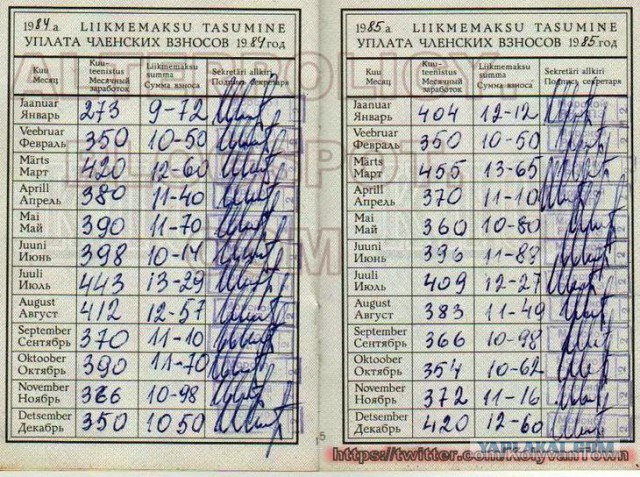 1984 a. LIIKMEMAKSU TASUMINE
УПЛАТА ЧЛЕНСКИХ ВЗНОСОВ 1984 год
Kuu Kuu- Liikmemaksu Sekretäri allkiri
Месяц teenistus summa Подпись секретаря
Месячный Сумма взноса
заработок
Jaanuar
Январь 273 9-72
Veebruar
Февраль 350 10-50
Märts
Март 420 12-60
Aprill
Апрель 380 11-40
Mai
Май 390 11-70
Juuni
Июнь 398
Juuli
Июль 443 13-29
August
Август 412 12-57
September
Сентябрь 370 11-10
Oktoober
Октябрь 390 11-70
November
Ноябрь 366 10-98
Detsember
Декабрь 350 10 50
1985 a. LIIKMEMAKSU TASUMINE
УПЛАТА ЧЛЕНСКИХ ВЗНОСОВ 1985 год
Kuu Kuu- Liikmemaksu Sekretäri allkiri
Месяц teenistus summa Подпись секретаря
Месячный Сумма взноса
заработок
Jaanuar
Январь 404 12-12
Veebruar
Февраль 350 10-50
Märts
Март 455 13-65
Aprill
Апрель 370 11-10
Mai
Май 360 10-80
Juuni
Июнь 396 11-89
Juuli
Июль 409 12-27
August
Август 383 11-49
September
Сентябрь 366 10-98
Oktoober
Октябрь 354 10-62
November
Ноябрь 372 11-16
Detsember
Декабрь 420 12-60
5
YAPLAKAL.COM
https://twitter.com/KolyvanTown